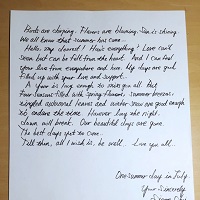 Birds are chirping. Flowers are blooming. Sun is shining.
We all know that summer has come.
Hello, my dearest! How's everything? Love can't
seen but can be felt from the heart. And I can feel
your love from everywhere and here. My days are got
filled up with your love and support.
A year is long enough to miss you all. But
four seasons filled with Spring flowers, Summer breezes,
autumnal leaves and winter snow are good enough
to endure the time. However long the night,
dawn will break. Our beautiful days are
The best days yet to come.
Till then, all I wish is, be well. Love you all.
One summer day in July.
Your Sincerely,